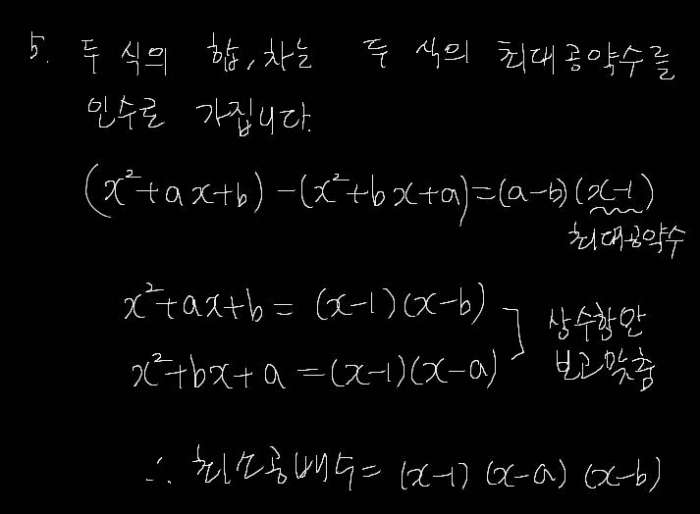 5. 두 식의 합,차는 두 식의 최대공약수를
인수로 가집니다.
(x²+ax+b)-(x²+bx+a)=(a-b)(x-1)
최대공약수
x²+ax+b=(x-1)(x-b)
상수항만
x²+bx+a=(x-1)(x-a)
보고맞춤
∴ 최소공배수=(x-1)(x-a)(x-b)